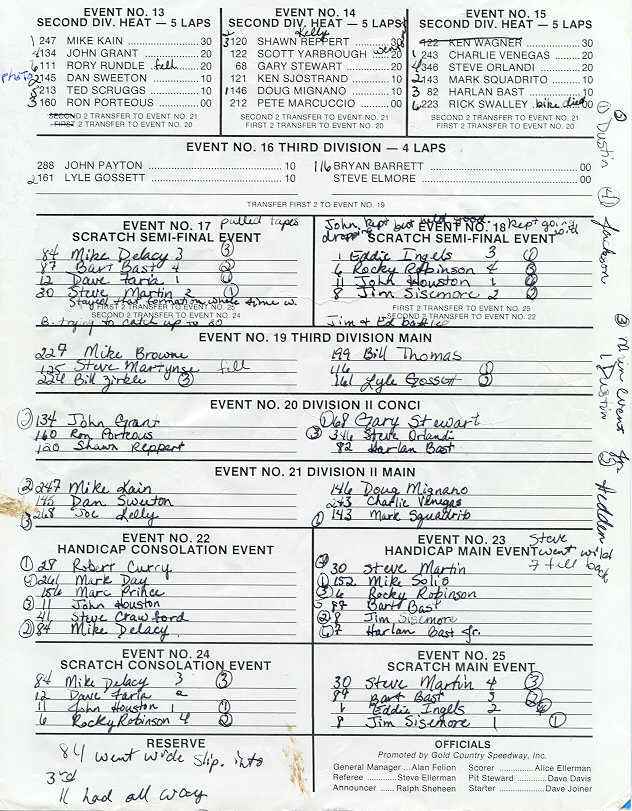 EVENT NO. 13
SECOND DIV. HEAT — 5 LAPS
1 247 MIKE KAIN 30
4 134 JOHN GRANT 20
6 111 RORY RUNDLE fell 20
photo 2 145 DAN SWEETON 10
5 213 TED SCRUGGS 10
3 160 RON PORTEOUS 00
SECOND 2 TRANSFER TO EVENT NO. 21
FIRST 2 TRANSFER TO EVENT NO. 20
EVENT NO. 14
SECOND DIV. HEAT — 5 LAPS
Kelly
2
3 120 SHAWN REPPERT 30
122 SCOTT YARBROUGH 20
68 GARY STEWART 20
121 KEN SJOSTRAND 10
1 146 DOUG MIGNANO 10
212 PETE MARCUCCIO 00
SECOND 2 TRANSFER TO EVENT NO. 21
FIRST 2 TRANSFER TO EVENT NO. 20
EVENT NO. 15
SECOND DIV. HEAT — 5 LAPS
122 KEN WAGNER 30
1 243 CHARLIE VENEGAS 20
4 346 STEVE ORLANDI 20
2 143 MARK SQUADRITO 10
3 82 HARLAN BAST 10
6 223 RICK SWALLEY bike died 00
SECOND 2 TRANSFER TO EVENT NO. 21
FIRST 2 TRANSFER TO EVENT NO. 20
EVENT NO. 16 THIRD DIVISION — 4 LAPS
288 JOHN PAYTON 10
2 161 LYLE GOSSETT 10
116 BRYAN BARRETT 00
STEVE ELMORE 00
TRANSFER FIRST 2 TO EVENT NO. 19
EVENT NO. 17 pulled tapes
SCRATCH SEMI-FINAL EVENT
84 Mike Delacy 3 3
87 Bart Bast 4 2
12 Dave Faria 1
30 Steve Martin 2 1
Stayed that formation whole time w.
FIRST 2 TRANSFER TO EVENT NO. 25
SECOND 2 TRANSFER TO EVENT NO. 24
B. trying to catch up to 30
John kept but held good. kept going
dropping
EVENT NO. 18
SCRATCH SEMI-FINAL EVENT
1 Eddie Ingels 3
6 Rocky Robinson 4
11 John Houston 1
8 Jim Sisemore 2
FIRST 2 TRANSFER TO EVENT NO. 25
SECOND 2 TRANSFER TO EVENT NO. 22
Jim & Ed battle
EVENT NO. 19 THIRD DIVISION MAIN
227 Mike Browne
125 Steve Martynse fell
224 Bill Zirkle 3
199 Bill Thomas
116
161 Lyle Gossett
EVENT NO. 20 DIVISION II CONCI
134 John Grant
160 Ron Porteous
120 Shawn Reppert
1 68 Gary Stewart
3 346 Steve Orlandi
82 Harlan Bast
EVENT NO. 21 DIVISION II MAIN
2 247 Mike Kain
145 Dan Sweeton
3 268 Joe Kelly
146 Doug Mignano
243 Charlie Venegas
1 143 Mark Squadrito
EVENT NO. 22
HANDICAP CONSOLATION EVENT
1 28 Robert Curry
261 Mark Day
156 Marc Prince
3 11 John Houston
41 Steve Crawford
2 84 Mike Delacy
EVENT NO. 23
HANDICAP MAIN EVENT
Steve
went wild
7 fell back
30 Steve Martin
1 152 Mike Solis
3 6 Rocky Robinson
5 87 Bart Bast
2 8 Jim Sisemore
6 7 Harlan Bast Jr.
EVENT NO. 24
SCRATCH CONSOLATION EVENT
84 Mike Delacy 3 3
12 Dave Faria 2
11 John Houston 1 1
6 Rocky Robinson 4 2
EVENT NO. 25
SCRATCH MAIN EVENT
30 Steve Martin 4 3
87 Bart Bast 3 2
1 Eddie Ingels 2 4
8 Jim Sisemore 1 1
RESERVE
84 went wide slip. into
3rd
11 had all way
OFFICIALS
Promoted by Gold Country Speedway, Inc.
General Manager Alan Felion
Referee Steve Ellerman
Announcer Ralph Sheheen
Scorer Alice Ellerman
Pit Steward Dave Davis
Starter Dave Joiner
1 Dustin 4 Jackson
3 Main Event Jr.
1 Dustin 2 Hedden